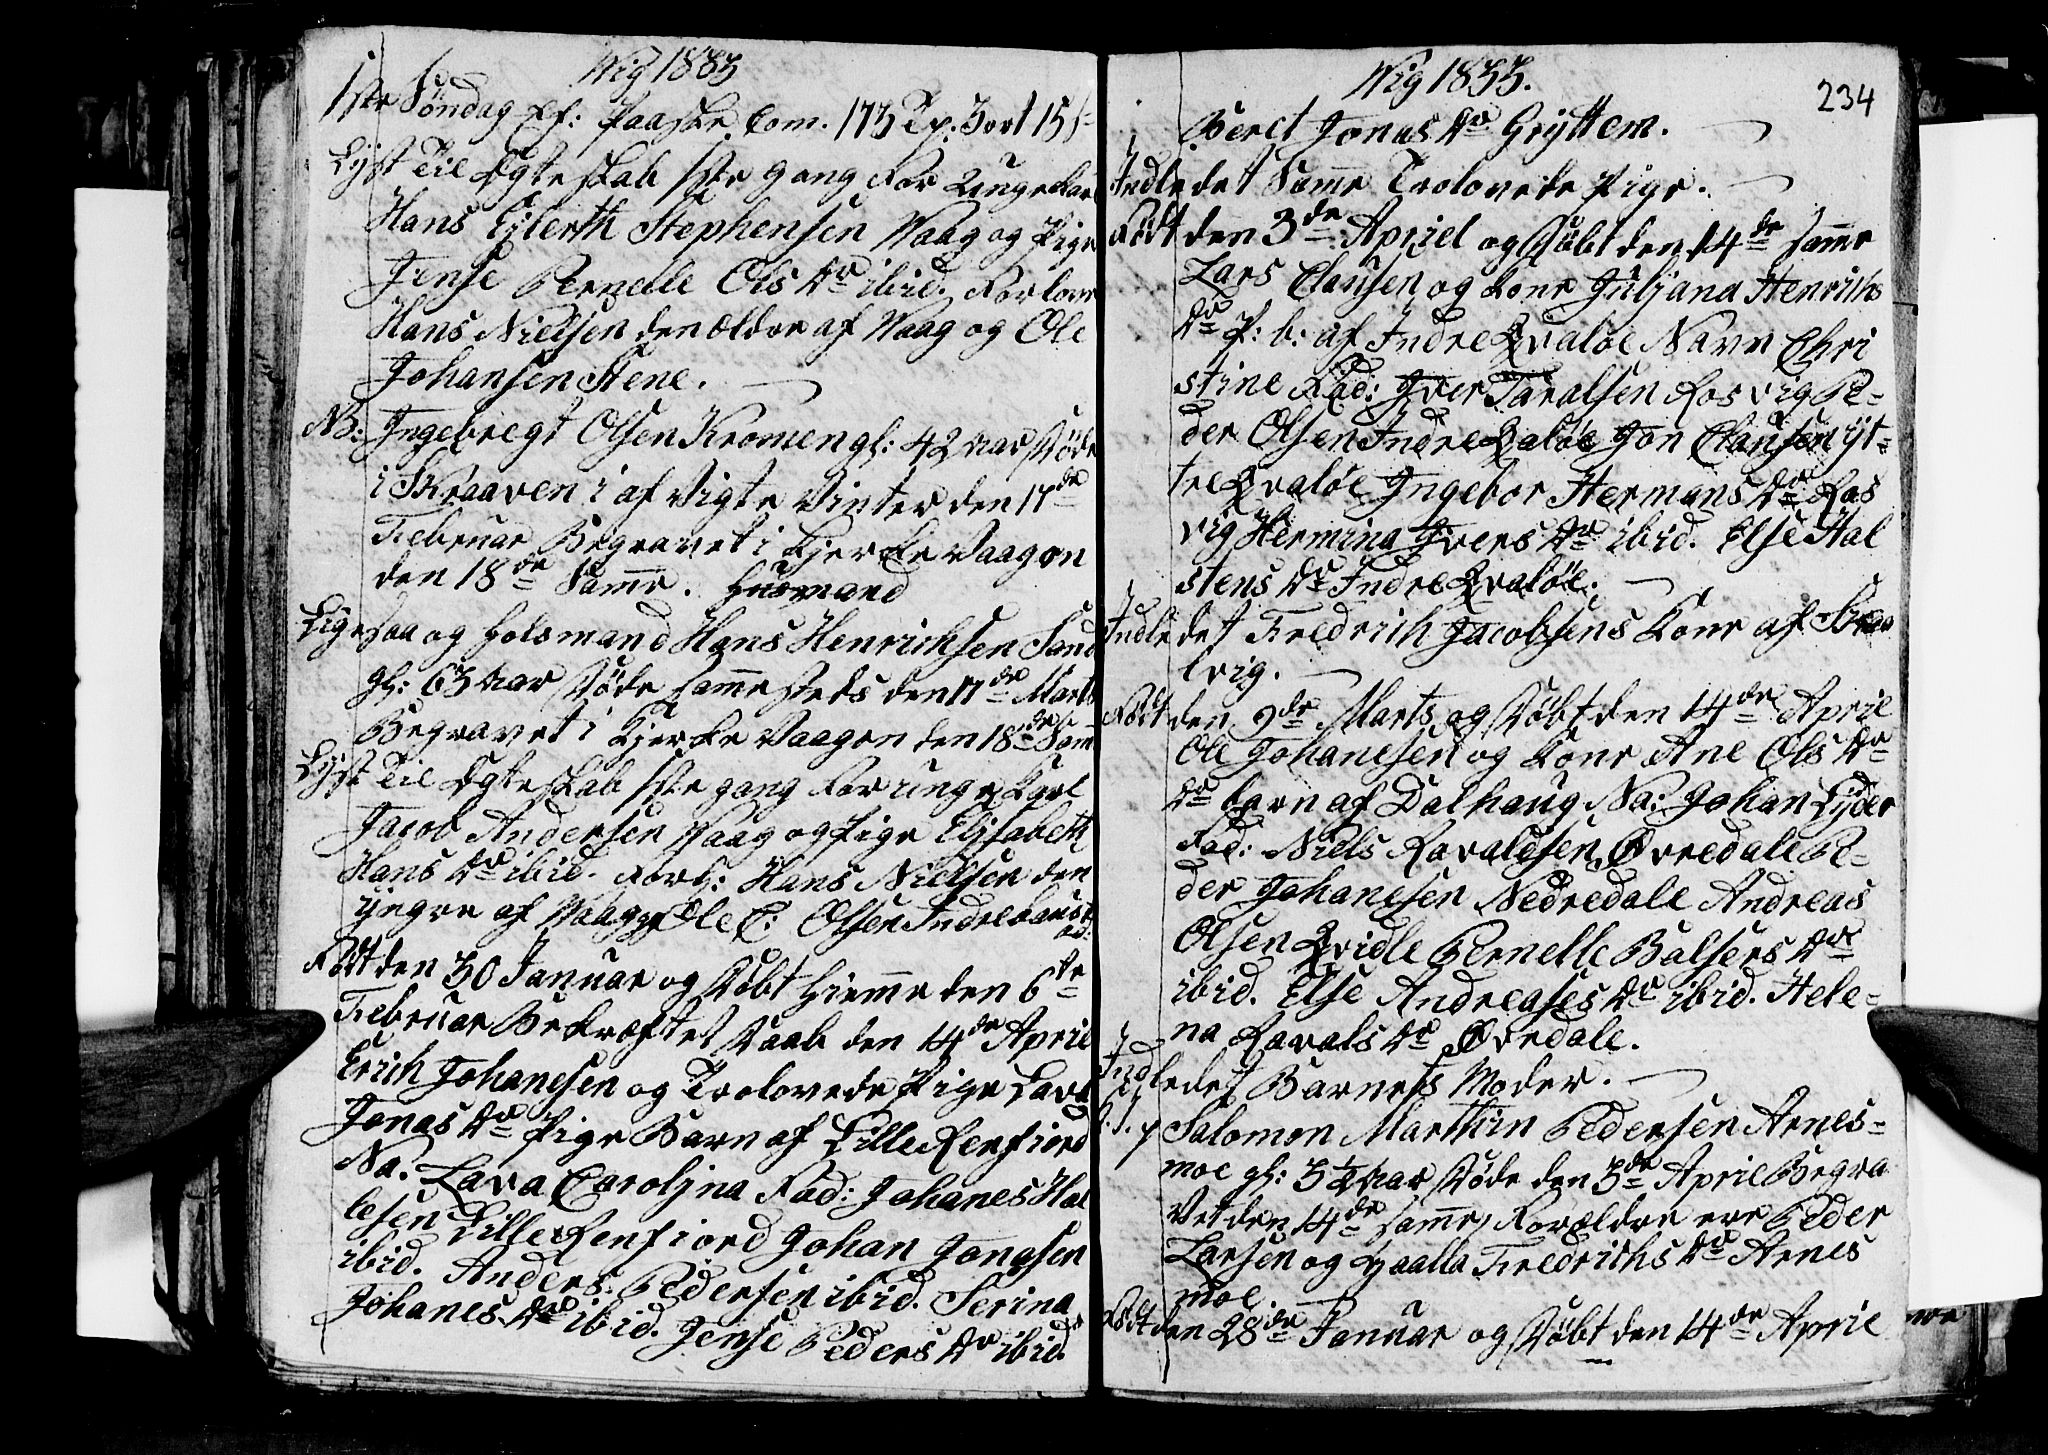 Wig 1833
1ste Søndag Ef: Paaske Com. 173 Sp. 3 ort 15 s
Lyst til Egteskab 1ste gang For Ungekarl
Hans Ejlerth Stephensen Vaag og Pige
Jense Pernelle Ols dtr ibid. Forlover
Hans Nielsen den ældre af Vaag og Ole
Johansen Stene.
NB: Ingebregt Olsen Kromen gl: 42 aar Døde
i Skraaven i af Vigte Vinter den 17de
Februar Begravet i Kjerke Vaagen
den 18de Samme. Husmand
Ligesaa og Holsmand Hans Henrichsen Sand
gl: 63 aar Døde samme steds den 17de Marts
Begravet i Kjerke Vaagen den 18de Sam
Lyst til Egteskab 1ste gang For unge Karl
Jacob Andersen Vaag og Pige Elisabeth
Hans dtr ibid. Forl: Hans Nielsen den
yngre af Vaag Ole C: Olsen Indrebaust
ad.
Født den 30 Januar og Døbt Hiemme den 6te
Februar Bekræftet Daab den 14de April
Erich Johanesen og Trolovede Pige Lava
Jonas dtr Pige Barn af Lille Renfiord
Na. Lava Caroljna Fad: Johanes Hal
lesen Lille Renfiord Johan Jonsen
ibid. Anders Pedersen ibid. Serina
Johanes dtr ibid. Jense Peders dtr ibid.
Wig 1833.
234
Beret Jonas dtr Gryttem.
Indledet Samme Trolovede Pige.
Født den 3de Apriel og Døbt den 14de samme
Lars Clausen og Kone Juljana Henrichs
dtr P: b: af Indre Qvaløe Navn Chri
stine Fad: Iver Taralsen Rosvig Pe-
der Olsen Indre Qvaløe Jon Clausen yt-
tre Qvaløe Ingebor Hermans dtr Ros
vig Hermina Ivers dtr ibid. Else Hal
stens dtr Indre Qvaløe.
Indledet Fredrich Jacobsens Kone af
lvig.
Født den 9de Marts og Døbt den 14de April
Ole Johanesen og Kone Ane Ols dtr
barn af Dalhaug Na: Johan Lyder
Fad: Niels Ravaldsen Øvredale Pe-
der Johanesen Nedredale Andreas
Olsen Qvidle Pernelle Balsers dtr
ibid. Else Andreases dtr ibid. Hele-
na Ravals dtr Øvredale.
Indledet Barnets Moder.
Salomon Marthin Pedersen Arnes-
moe gl: 3 1/2 aar Døde den 3de April Begra
vet den 14de samme, Forældre ere Peder
Larsen og Fredrichs dtr Arnes
moe
Født den 28de Januar og Døbt den 14de April